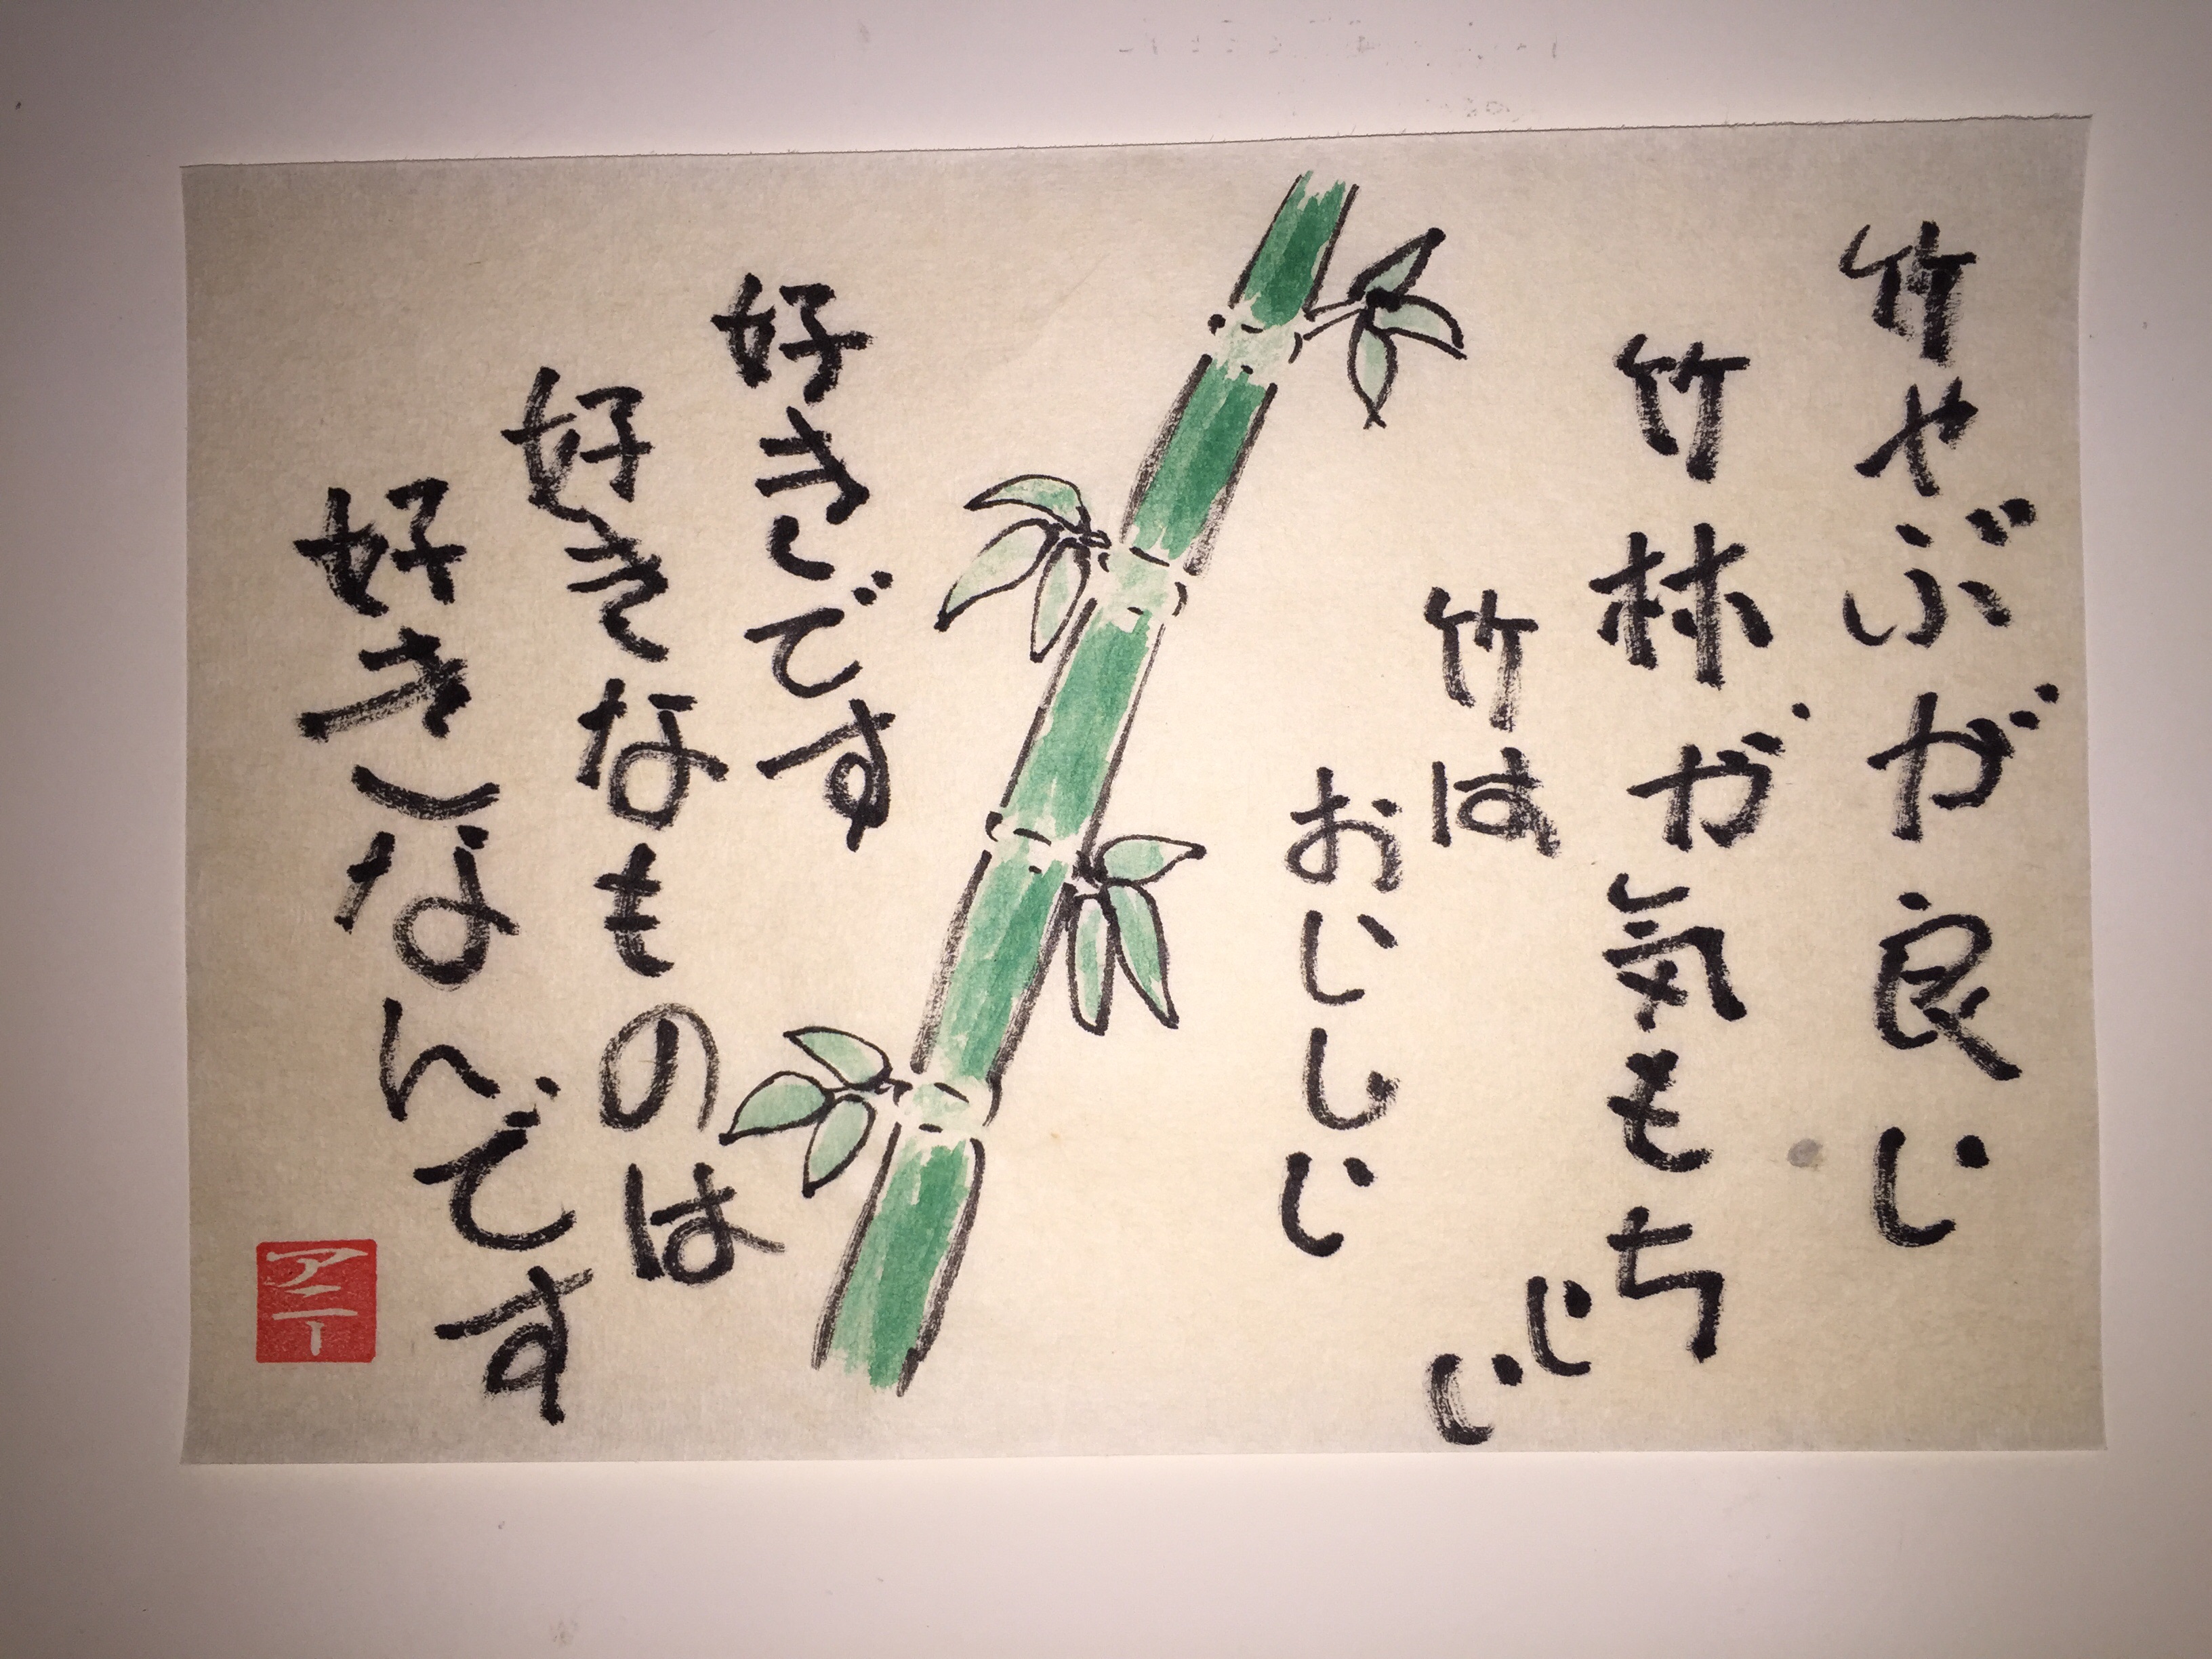 竹やぶが良い
竹林が気もちいい
竹は
おいしい
好きです
好きなものは
好きなんです
アニー